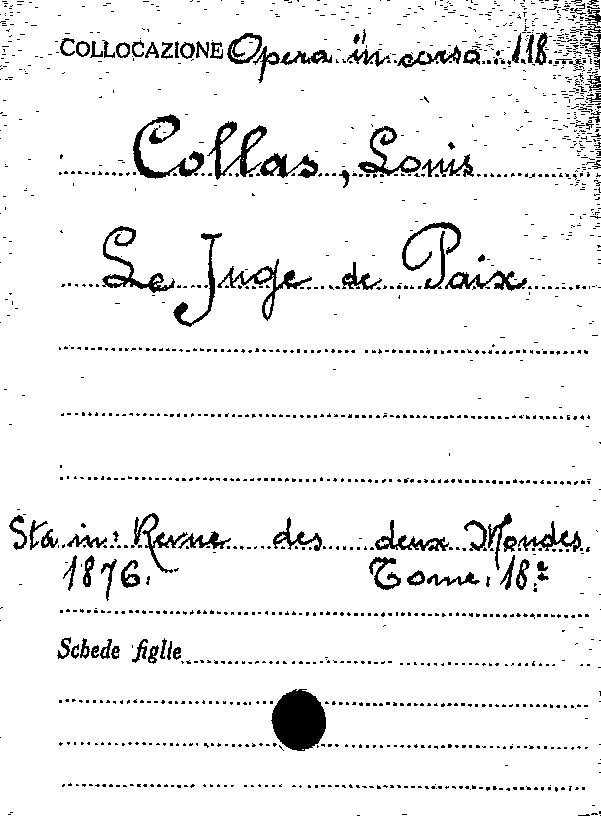 COLLOCAZIONE Opera in corso. 118
Collas, Louis
Le Juge de Paix
Sta in: Revue des deux Mondes.
1876. Tome. 18.e
Schede figlie